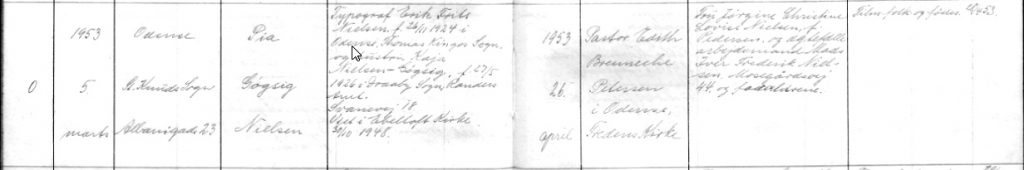 0
1953
5
marts
Odense
St. Knuds Sogn
Albanigade 23
Pia
Gøgsig
Nielsen
Typograf Erik Frits
Nielsen, f. 1924 i
Odense, Thomas Kingos Sogn,
og hustru Kaja
Nielsen-Gøgsig, f. 27/5
1926 i Sogn, Randers
Amt.
Svanevej 18.
Viet i Ebeltoft Kirke
30/10 1948.
1953
26.
april
Pastor Edith
Brenneche
Petersen
i Odense,
Fredens Kirke
Fru Jørgine Christine
Lovise Nielsen, f.
Pedersen, og ægtefælle
arbejdsmand Mads
Iver Frederik Niel-
sen, Mosegårdsvej
44, og forældrene.
Tilm. folk. og føder.